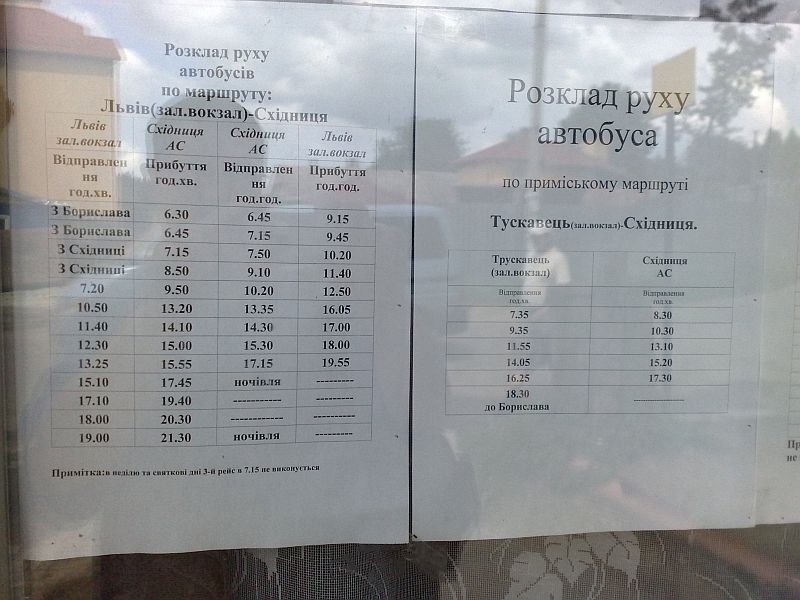 Розклад руху
автобусів
по маршруту:
Львів(зал.вокзал)-Східниця
Львів зал.вокзал Східниця АС Східниця АС Львів зал.вокзал
Відправлен ня год.хв. Прибуття год.хв. Відправлен ня год.год. Прибуття год.год.
З Борислава 6.30 6.45 9.15
З Борислава 6.45 7.15 9.45
З Східниці 7.15 7.50 10.20
З Східниці 8.50 9.10 11.40
7.20 9.50 10.20 12.50
10.50 13.20 13.35 16.05
11.40 14.10 14.30 17.00
12.30 15.00 15.30 18.00
13.25 15.55 17.15 19.55
15.10 17.45 ночівля ---------
17.10 19.40 ----------- ---------
18.00 20.30 ------------ ---------
19.00 21.30 ночівля ---------
Примітка:в неділю та святкові дні 3-й рейс в 7.15 не виконується
Розклад руху
автобуса
по приміському маршруті
Тускавець(зал.вокзал)-Східниця.
Трускавець (зал.вокзал) Східниця АС
Відправлення год.хв. Відправлення год.хв.
7.35 8.30
9.35 10.30
11.55 13.10
14.05 15.20
16.25 17.30
18.30 до Борислава -----------------
Пр
не